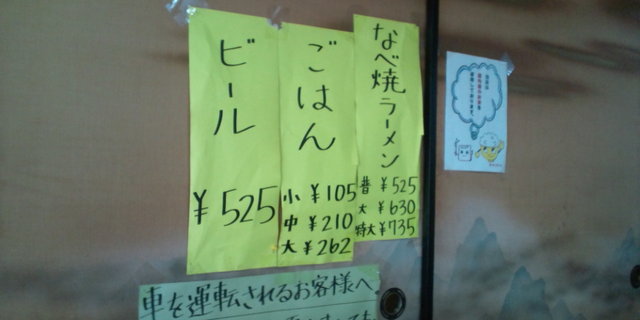 なべ焼ラーメン
昔 ¥525
大 ¥630
特大 ¥735
ごはん
小 ¥105
中 ¥210
大 ¥262
ビール
¥525
車を運転されるお客様へ